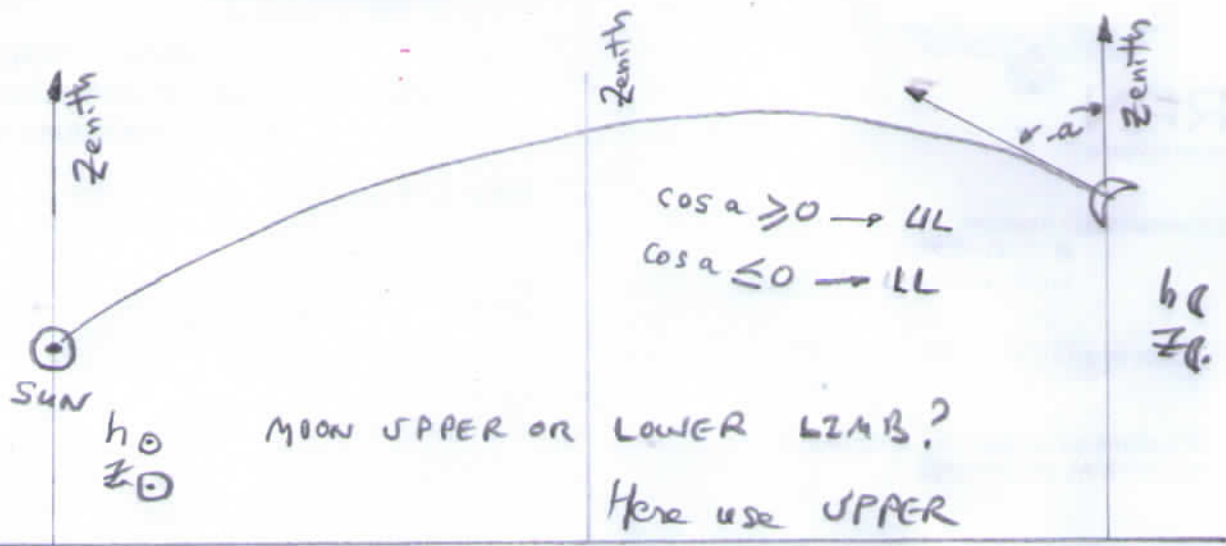 Zenith
Zenith
Zenith
a
cos a ≥ 0 → UL
cos a ≤ 0 → LL
h☾
Z☾
SUN
h☉
Z☉
MOON UPPER OR LOWER LIMB?
Here use UPPER